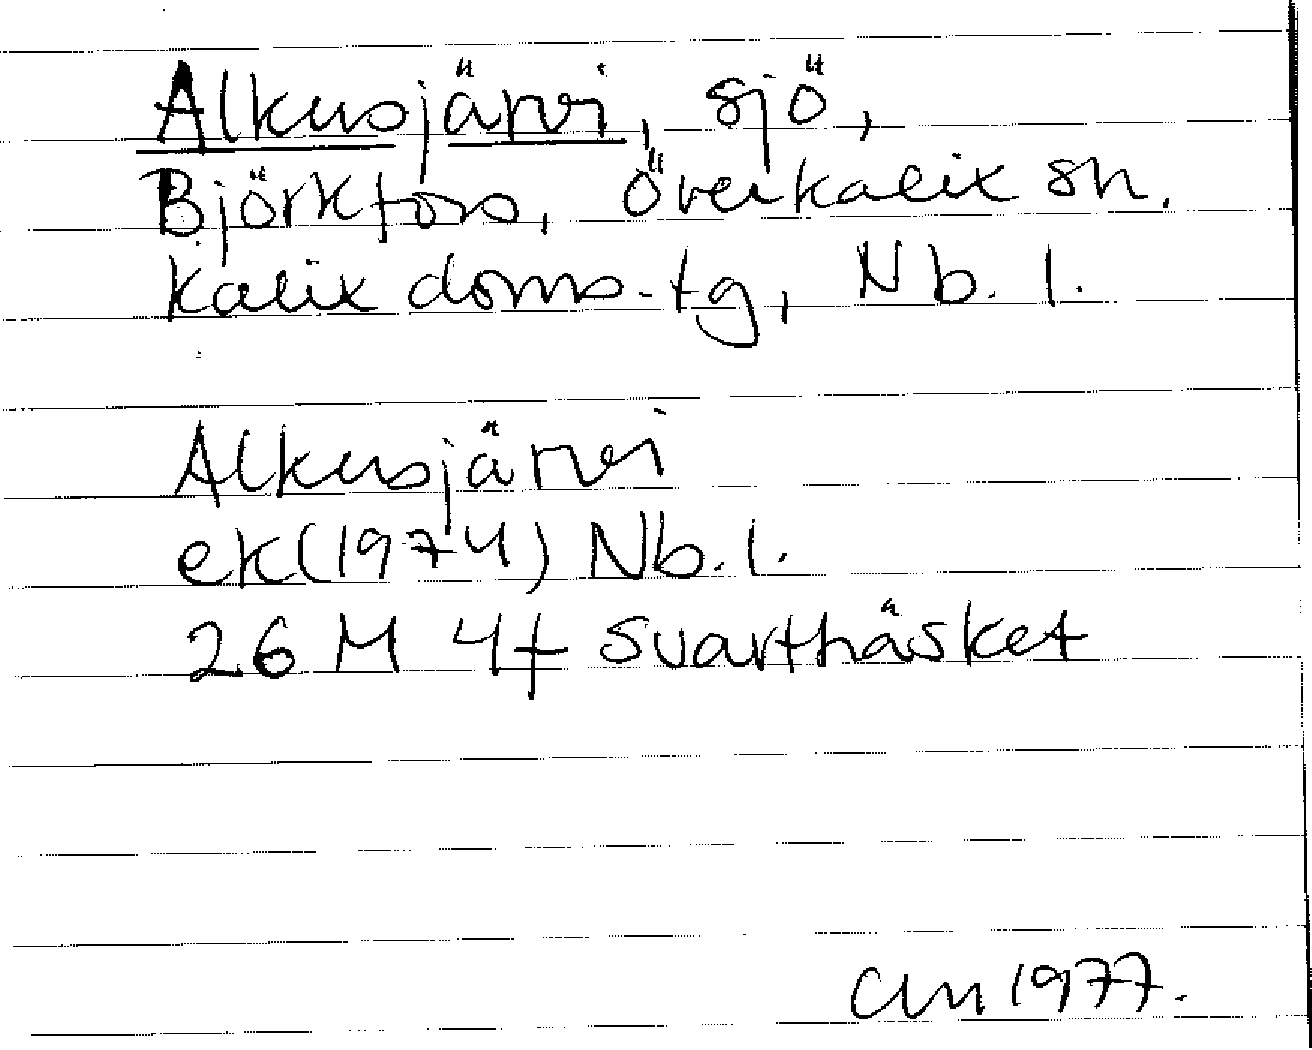 Alkusjärvi, sjö,
Björkfors, Överkalix sn.
Kalix doms.tg, Nb. l.
Alkusjärvi
ek(1974) Nb. l.
26 M 4f Svarthåsket
1977.